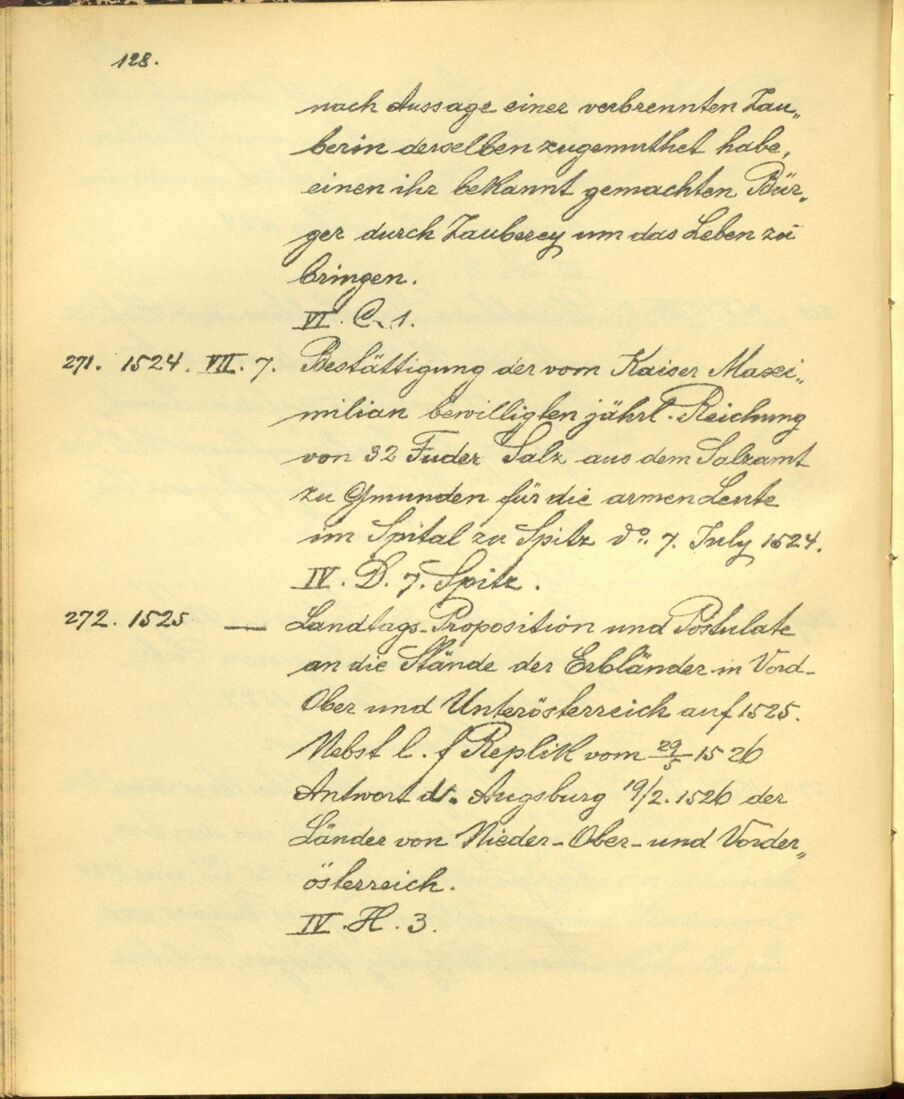 128.
nach Aussage einer verbrennten Zau„
berin derselben zugemuthet habe,
einen ihr bekannt gemachten Bür„
ger durch Zauberey um das Leben zu
bringen.
VI. C. 1.
271. 1524. VII. 7. Bestättigung der vom Kaiser Maxi„
milian bewilligten jährl. Reichung
von 32 Fuder Salz aus dem Salzamt
zu Gmunden für die armen Leute
im Spital zu Spitz do. 7. July 1524.
IV. D. 7. Spitz.
272. 1525 — Landtags-Proposition und Postulate
an die Stände der Erbländer in Vord-
Ober und Unterösterreich auf 1525.
Nebst l. f. Replik vom 29/5 1526
Antwort d. Augsburg 19/2. 1526 der
Länder von Nieder-Ober- und Vorder„
österreich.
IV. H. 3.